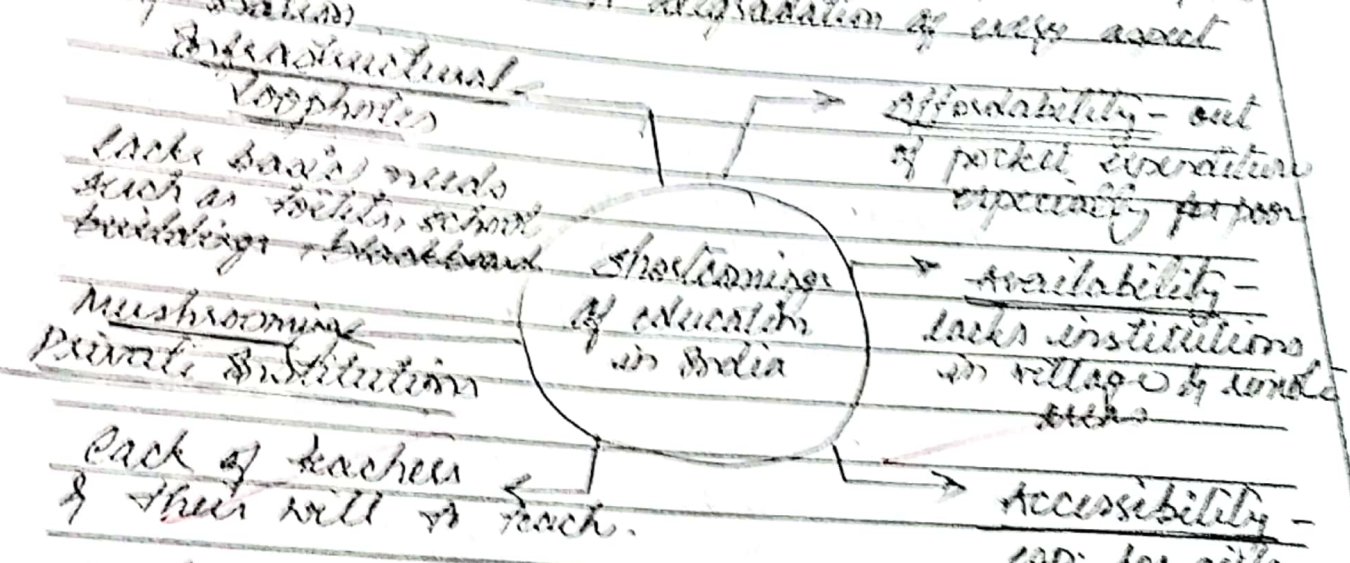 degradation of every aspect
Infrastructural
loopholes
lacks basic needs
such as toilets, school
buildings, blackboard
Mushrooming
Private Institution
lack of teachers
& their will to teach.
Shortcomings
of education
in India
Affordability - out
of pocket expenditure
especially for poor
Availability -
lacks institutions
in village & remote
areas
Accessibility -